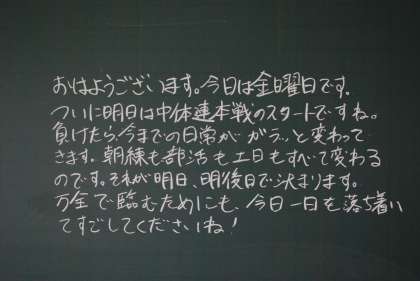 おはようございます。今日は金曜日です。
ついに明日は中体連本戦のスタートですね。
負けたら今までの日常が ガラッと変わって
きます。朝練も部活も土日もすべて変わる
のです。それが明日、明後日で決まります。
万全で臨むためにも、今日一日を落ち着い
てすごしてくださいね!